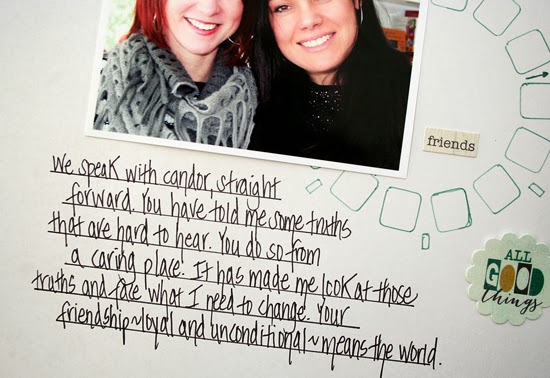 friends
We speak with candor, straight
forward. You have told me some truths
that are hard to hear. You do so from
a caring place. It has made me look at those
truths and face what I need to change. Your
friendship~loyal and unconditional~means the world.
ALL
GOOD
things